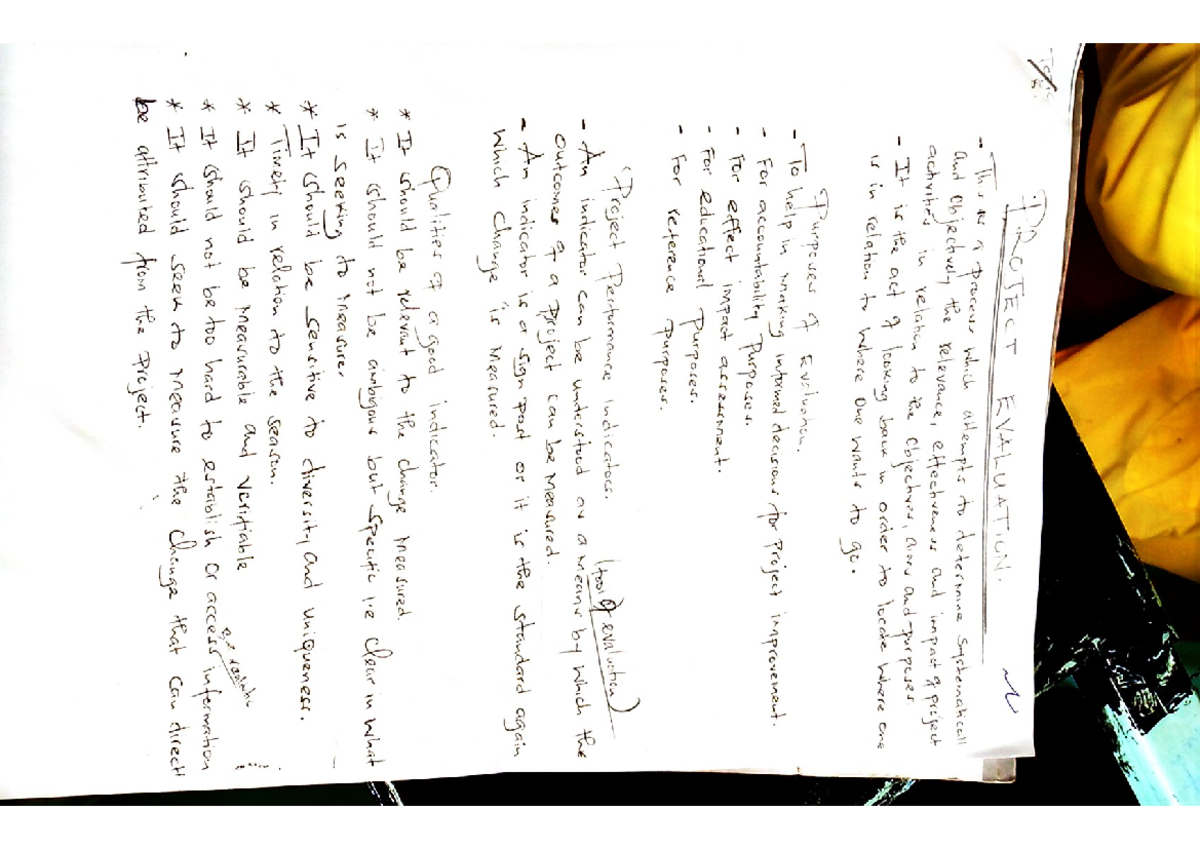 PROJECT EVALUATION.
- This is a process which attempts to determine systematicall
and objectively the relevance, effectiveness and impact of project
activities in relation to the objectives, aims and purposes
- It is the act of looking back in order to locate where one
is in relation to where one wants to go.
Purposes of Evaluation.
- To help in making informed decisions for project improvement.
- For accountability purposes.
- For effect impact assessment.
- For educational purposes.
- For reference purposes.
Project Performance indicators. (tool of evaluation)
- An indicator can be understood as a means by which the
outcomes of a project can be measured.
- An indicator is a sign post or it is the standard again
which change is measured.
Qualities of a good indicator.
* It should be relevant to the change measured.
* It should not be ambigous but specific i.e clear in what
is seeking to measure.
* It should be sensitive to diversity and uniqueness.
* Timely in relation to the season.
* It should be measurable and verifiable
* It should not be too hard to establish or access information
* It should seek to measure the change that can directl
be attributed from the project.